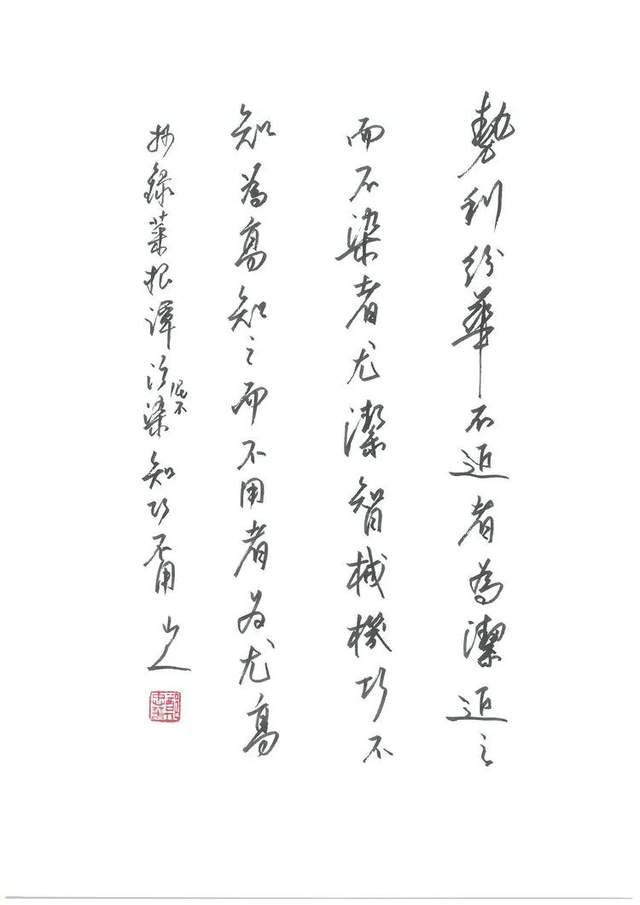 勢利紛華不近者為潔近之
而不染者尤潔智械機巧不
知為高知之而不用者為尤高
抄錄菜根譚污泥不染知巧不用 山人